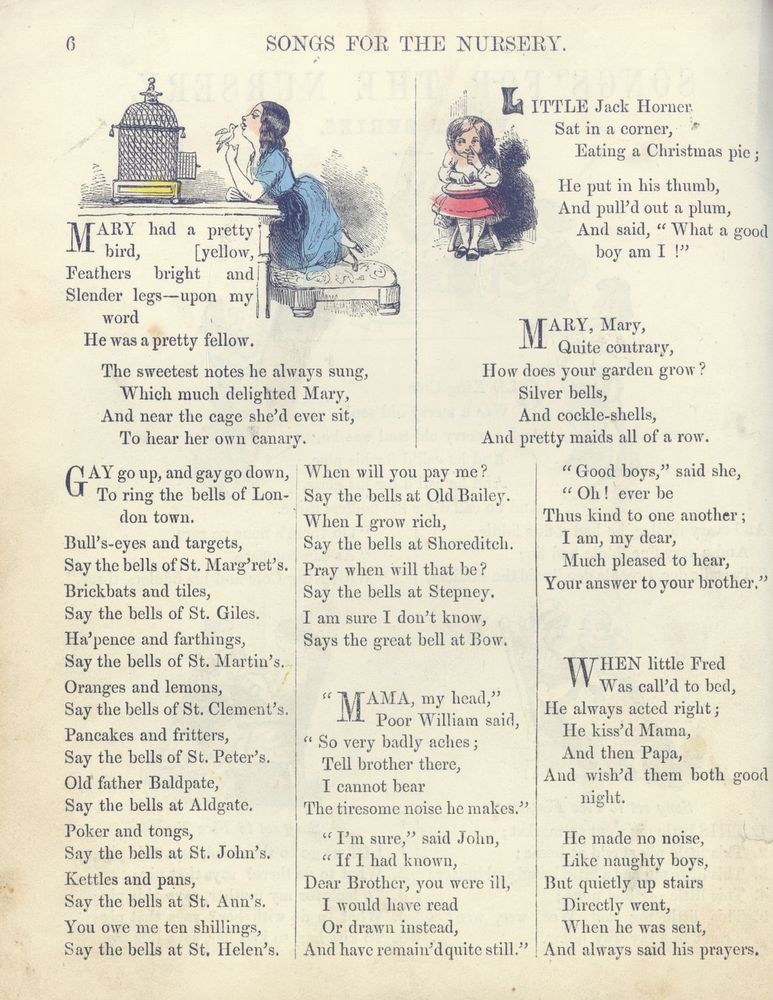 6
SONGS FOR THE NURSERY.
MARY had a pretty
bird, [yellow,
Feathers bright and
Slender legs—upon my
word
He was a pretty fellow.
The sweetest notes he always sung,
Which much delighted Mary,
And near the cage she'd ever sit,
To hear her own canary.
LITTLE Jack Horner
Sat in a corner,
Eating a Christmas pie;
He put in his thumb,
And pull'd out a plum,
And said, "What a good
boy am I!"
MARY, Mary,
Quite contrary,
How does your garden grow?
Silver bells,
And cockle-shells,
And pretty maids all of a row.
GAY go up, and gay go down,
To ring the bells of Lon-
don town.
Bull's-eyes and targets,
Say the bells of St. Marg'ret's.
Brickbats and tiles,
Say the bells of St. Giles.
Ha'pence and farthings,
Say the bells of St. Martin's.
Oranges and lemons,
Say the bells of St. Clement's.
Pancakes and fritters,
Say the bells of St. Peter's.
Old father Baldpate,
Say the bells at Aldgate.
Poker and tongs,
Say the bells at St. John's.
Kettles and pans,
Say the bells at St. Ann's.
You owe me ten shillings,
Say the bells at St. Helen's.
When will you pay me?
Say the bells at Old Bailey.
When I grow rich,
Say the bells at Shoreditch.
Pray when will that be?
Say the bells at Stepney.
I am sure I don't know,
Says the great bell at Bow.
"MAMA, my head,"
Poor William said,
"So very badly aches;
Tell brother there,
I cannot bear
The tiresome noise he makes."
"I'm sure," said John,
"If I had known,
Dear Brother, you were ill,
I would have read
Or drawn instead,
And have remain'd quite still."
"Good boys," said she,
"Oh! ever be
Thus kind to one another;
I am, my dear,
Much pleased to hear,
Your answer to your brother."
WHEN little Fred
Was call'd to bed,
He always acted right;
He kiss'd Mama,
And then Papa,
And wish'd them both good
night.
He made no noise,
Like naughty boys,
But quietly up stairs
Directly went,
When he was sent,
And always said his prayers.